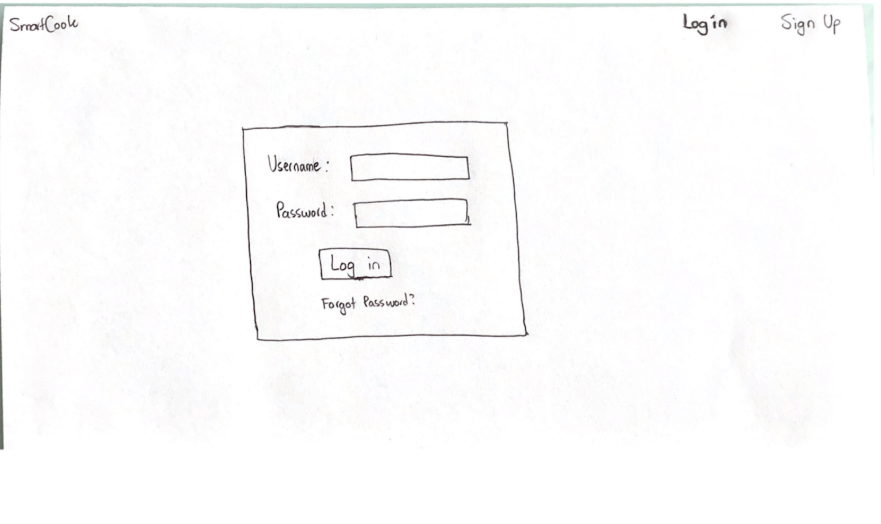 SmartCook
Login
Sign Up
Username :
Password :
Log in
Forgot Password?